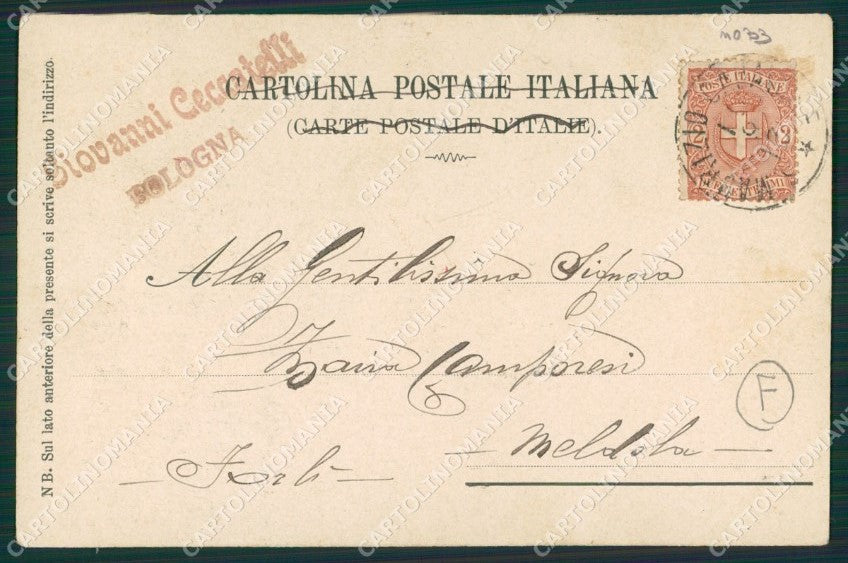 MOD3
Giovanni Ceccatelli
BOLOGNA
CARTOLINA POSTALE ITALIANA
(CARTE POSTALE D'ITALIE).
POSTE ITALIANE
2
NB. Sul lato anteriore della presente si scrive soltanto l'indirizzo.
Alla Gentilissima Signora
Zaira Camporesi
F
Meldola
Forlì
CARTOLINOMANIA